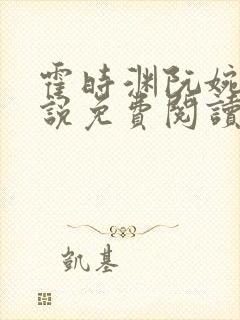 霍時渊阮婉
說免費閱讀
凱基